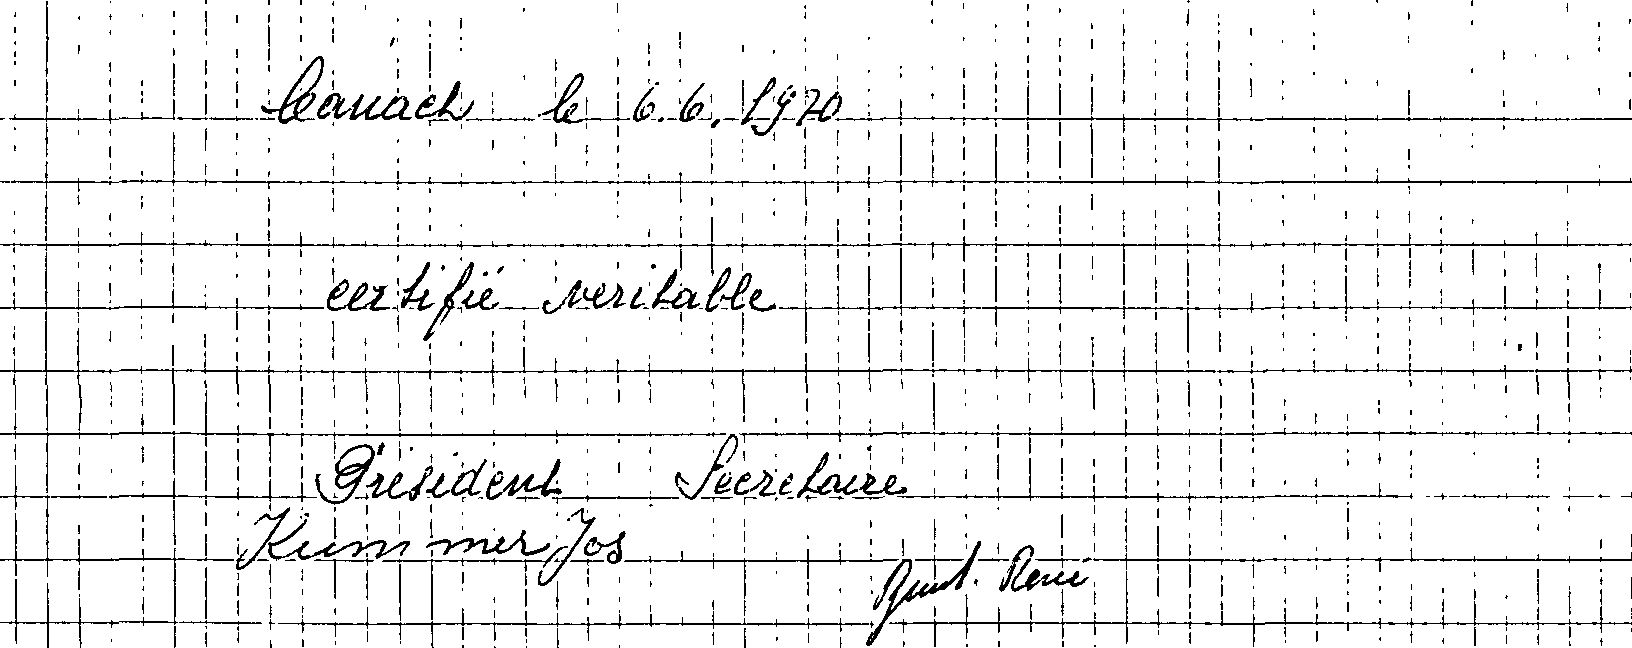 Canach le 6.6.1970
certifié veritable
Président Secretaire
Kummer Jos
René